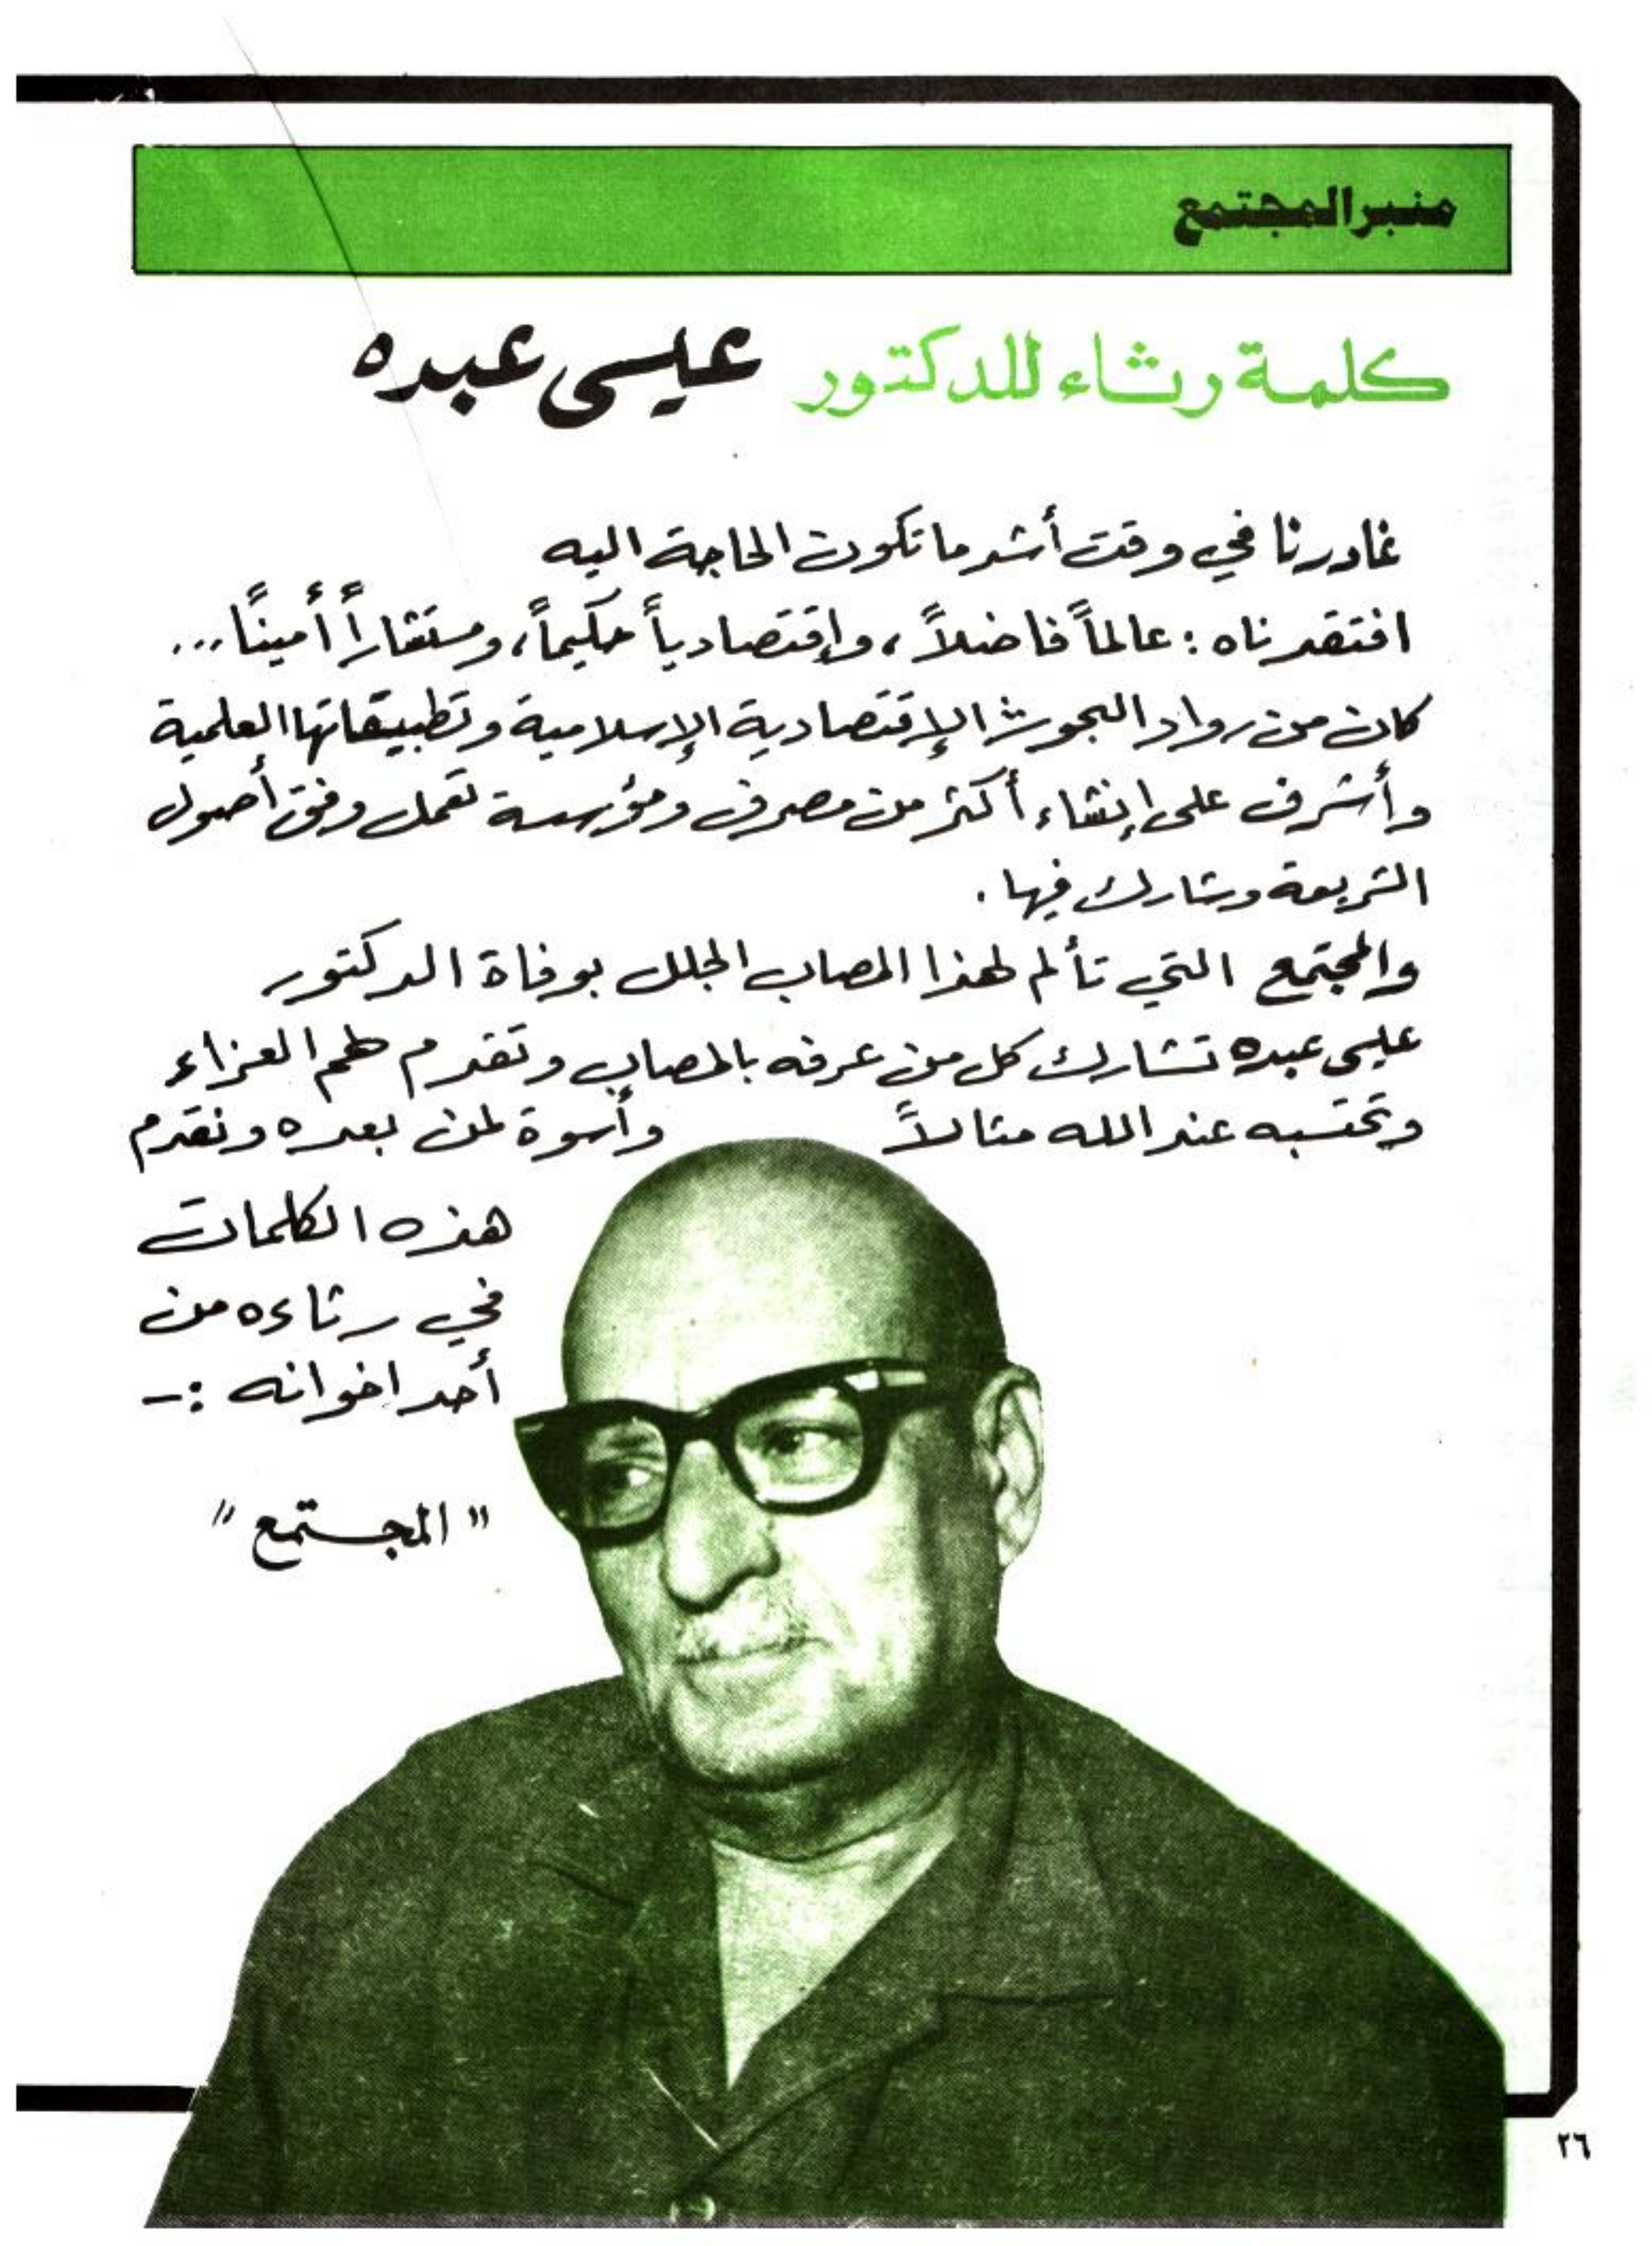 منبر المجتمع
كلمة رثاء للدكتور عيسى عبده
غادرنا في وقت أشد ما تكون الحاجة اليه
افتقدناه : عالماً فاضلاً ، وإقتصادياً حكيماً ، ومستشاراً أميناً ...
كان من رواد البحوث الإقتصادية الإسلامية وتطبيقاتها العلمية
وأشرف على إنشاء أكثر من مصرف ومؤسسة تعمل وفق أصول
الشريعة وشارك فيها .
والمجتمع التي تألم لهذا المصاب الجلل بوفاة الدكتور
عيسى عبده تشارك كل من عرفه بالمصاب وتقدم لهم العزاء
وتحتسبه عند الله مثالاً وأسوة لمن بعده ونقدم
هذه الكلمات
في رثاءه من
أحد اخوانه :-
" المجتمع "
٢٦